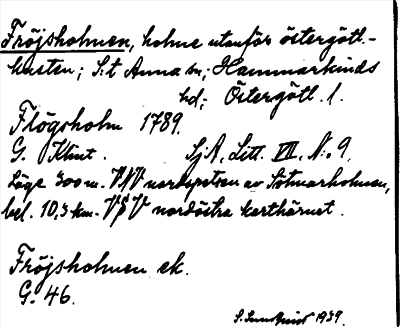 Fröjsholmen, holme utanför östergötl.-
kusten; S:t Anna sn; Hammarkinds
hd; Östergötl. l.
Flögsholm 1789.
G. Klint. SjA, Litt. VII, N:o 9.
Läge 300 m. VNV nordspetsen av Sötmarholmen,
bel. 10,3 km. VSV nordöstra karthörnet.
Fröjsholmen ek.
G. 46.
S. Sundquist 1939.